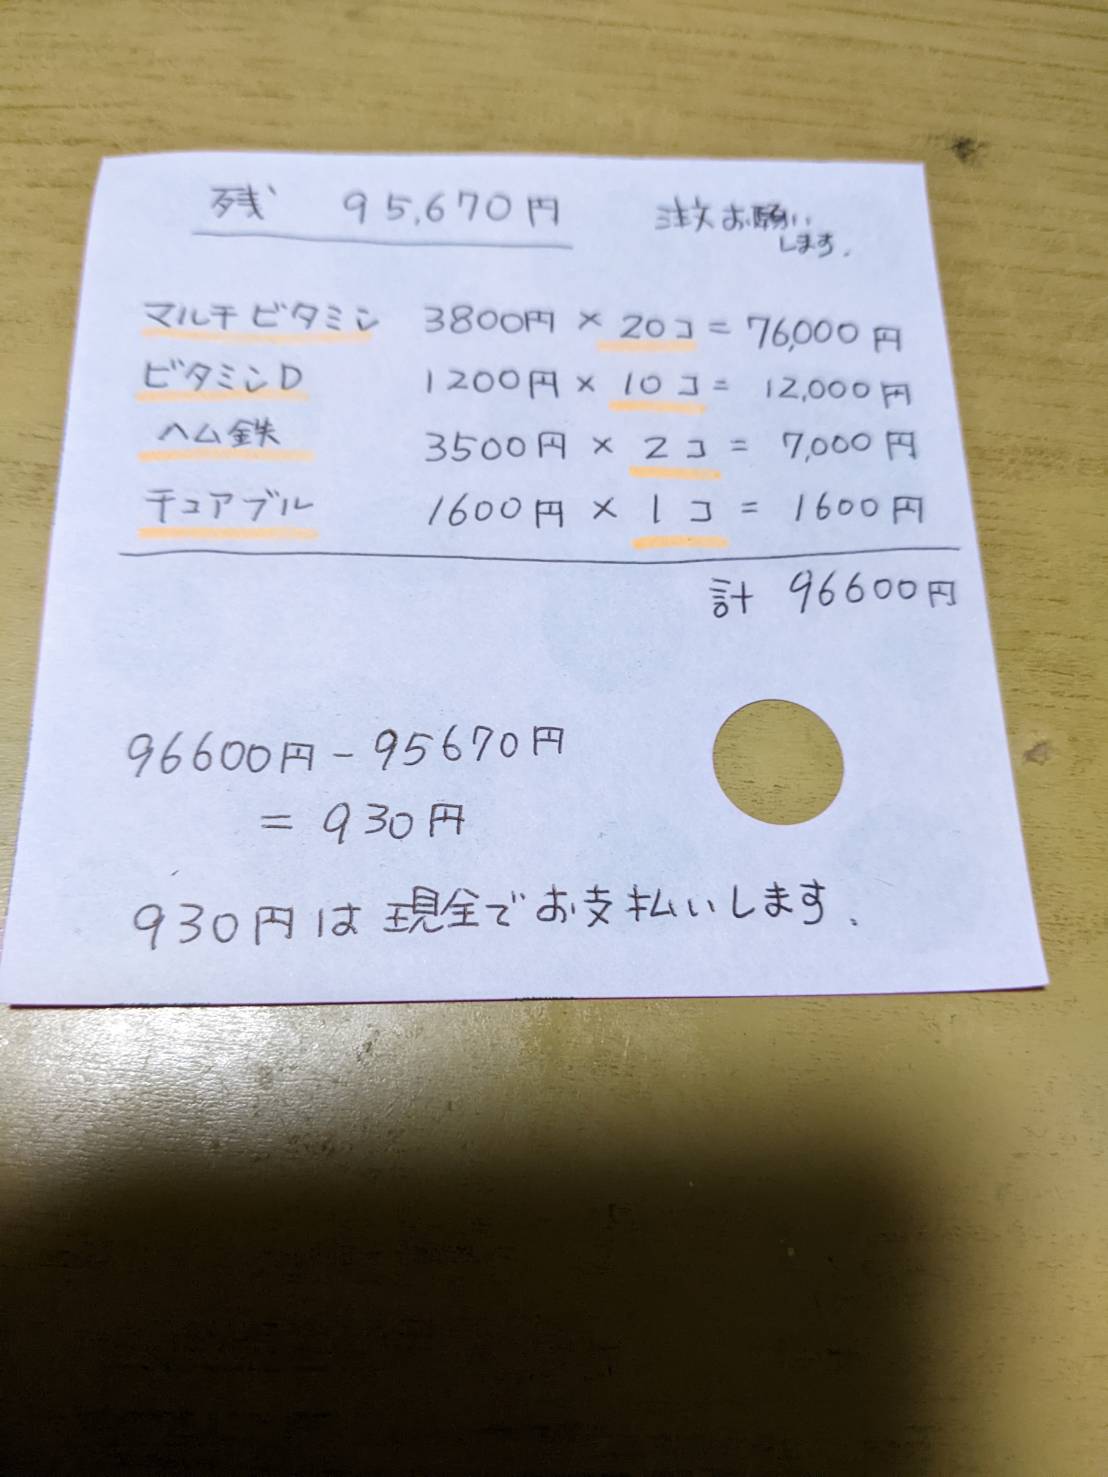 残 95,670円
注文お願い
します.
マルチビタミン 3800円 × 20コ = 76,000円
ビタミンD 1200円 × 10コ = 12,000円
ヘム鉄 3500円 × 2コ = 7,000円
チュアブル 1600円 × 1コ = 1600円
計 96600円
96600円 - 95670円
= 930円
930円は現金でお支払いします.